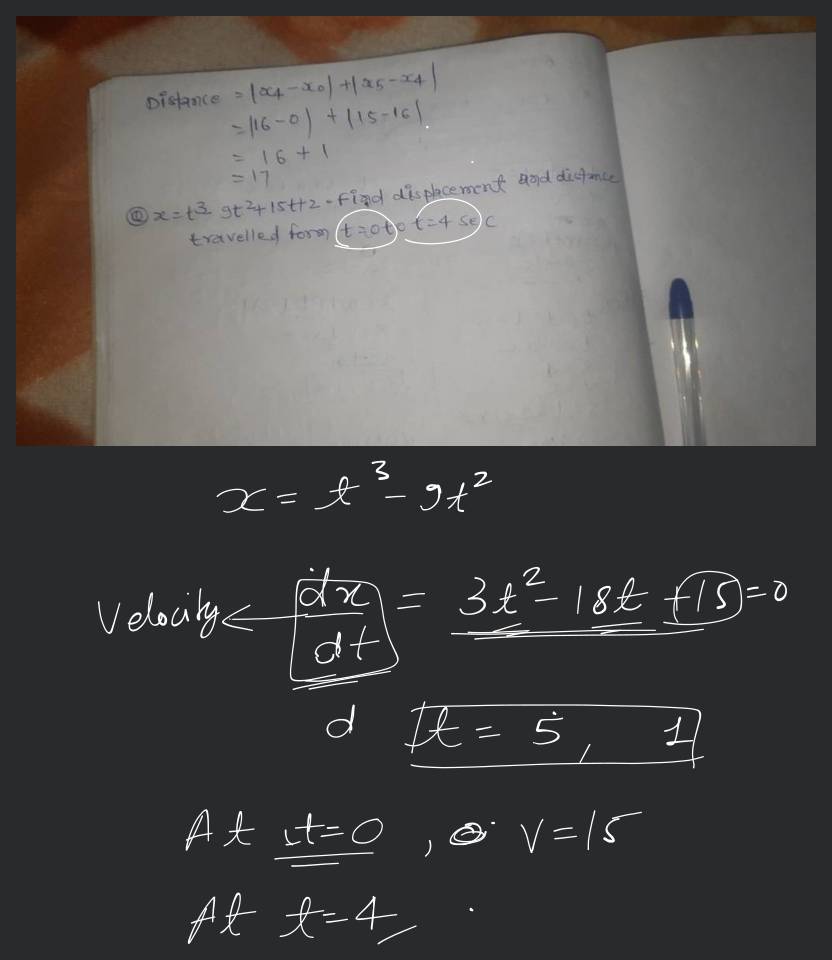 Distance = |x4-x0| + |x5-x4|
= |16-0) + (15-16|
= 16 + 1
= 17
Q x=t3 9t2+15t+2. Find displacement and distance
travelled form t=0 to t=4 sec
x = t3 - 9t2
Velocity ← dx/dt = 3t2 - 18t +15 = 0
d t = 5, 1
At t=0, v=15
At t=4